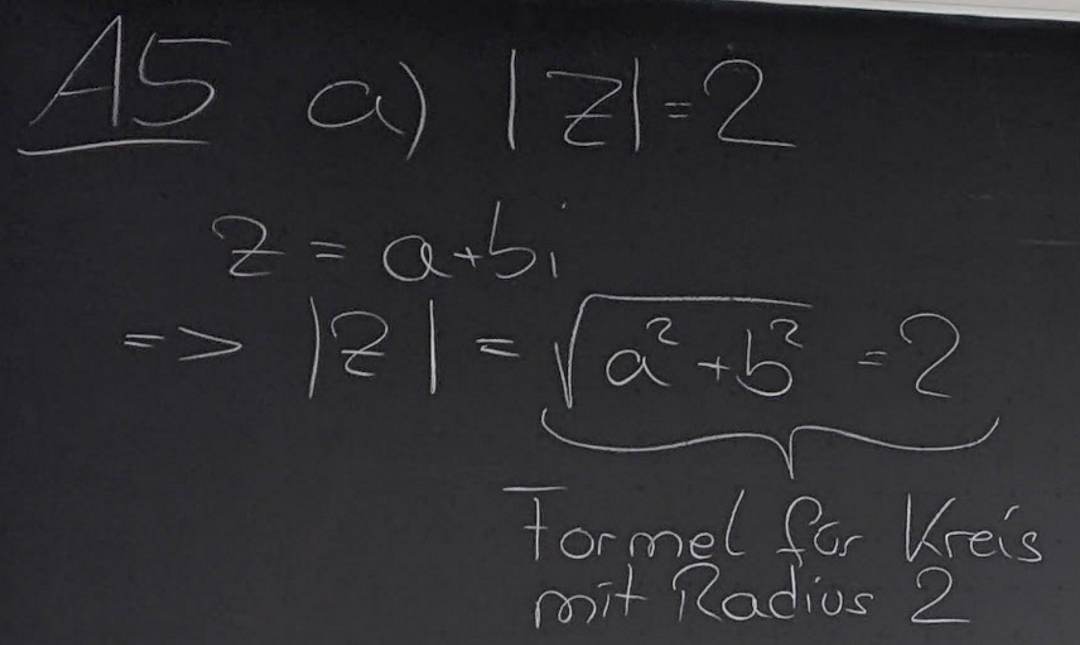 A5 a) |z|=2
z = a+bi
=> |z| = √(a²+b²) = 2
Formel für Kreis
mit Radius 2